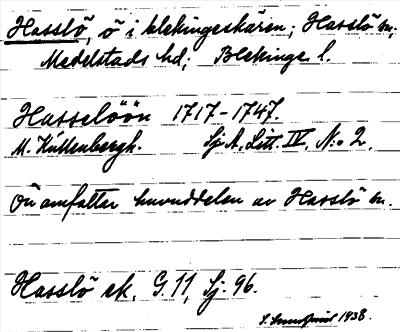 Hasslö, ö i blekingeskären; Hasslö sn,
Medelstads hd; Blekinge l.
Hasselöön 1717-1747.
M. Küllenbergh. Sj. A. Litt. IV. N:o 2.
Ön omfattar huvuddelen av Hasslö sn.
Hasslö ek. G. 11, Sj. 96.
1938.